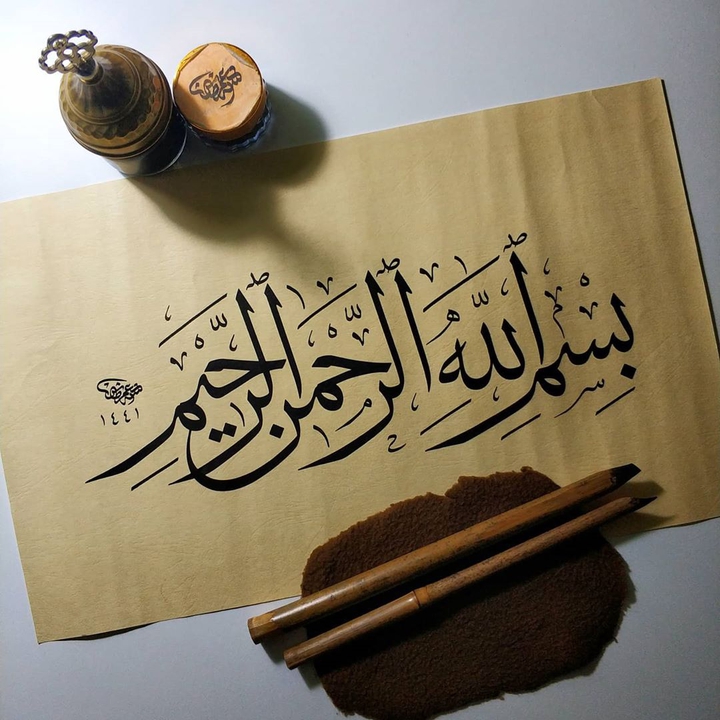 بِسْمِ اللّٰهِ الرَّحْمٰنِ الرَّحِيْمِ
١٤٤١